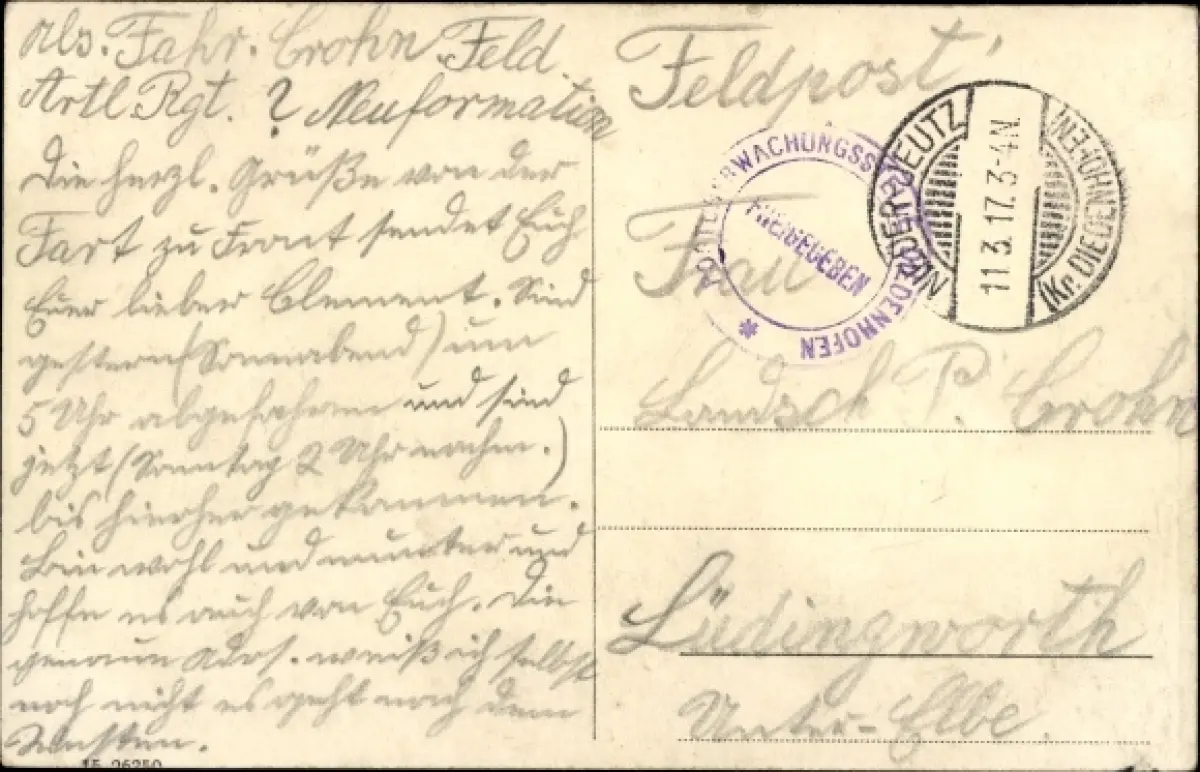 Abs. Fahr. Crohn Feld
Artl. Rgt. ? Neuformation
Die herzl. Grüße von der
Fart zu Front sendet Euch
Euer lieber Clement. Sind
gestern (Sonnabend) um
5 Uhr abgefahren und sind
jetzt (Sonntag 2 Uhr nachm.)
bis hierher gekommen.
Bin wohl und munter und
hoffe es auch von Euch. Die
genaue Adrs. weiß ich selbst
noch nicht es geht nach dem
Westen.
15 26350
Feldpost
POSTÜBERWACHUNGSSTELLE DIEDENHOFEN
FREIGEGEBEN
NIEDERJEUTZ
11.3.17.3-4N.
(Kr. DIEDENHOFEN)
Frau
Landsch P. Crohn
Lüdingworth
Unter-Elbe.